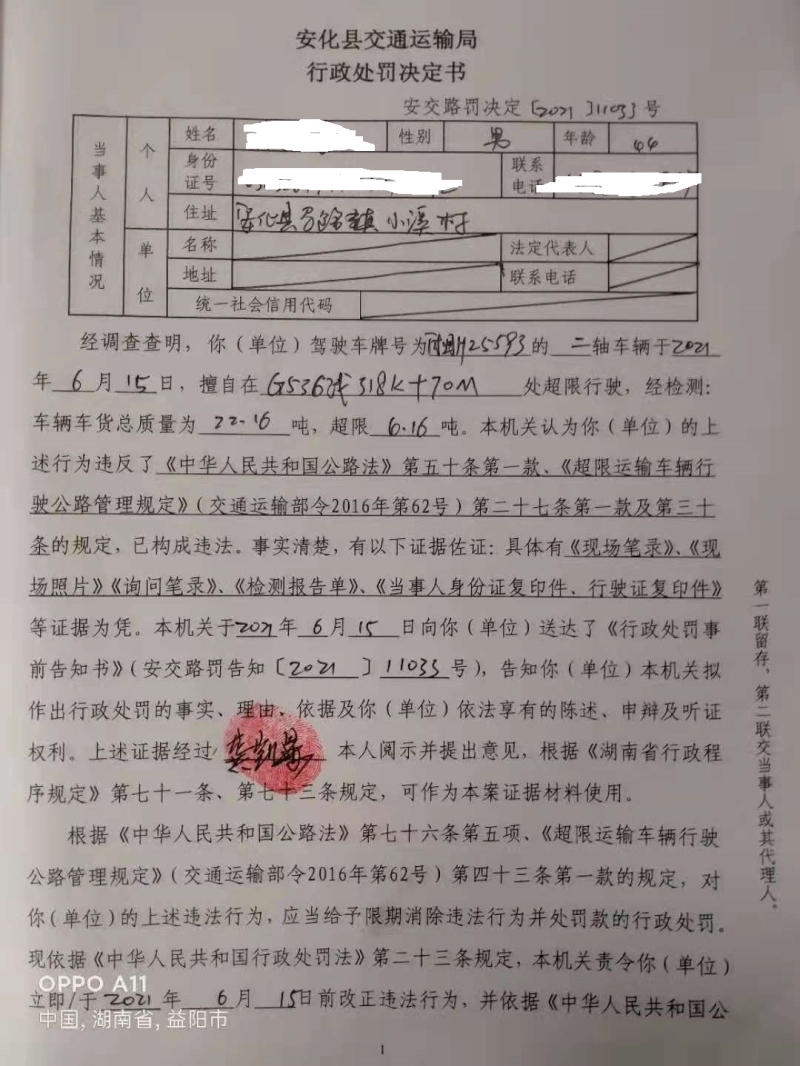 安化县交通运输局
行政处罚决定书
安交路罚决定〔2021〕11033号
当事人基本情况
个人
姓名 性别 男 年龄 44
身份证号 联系电话
住址 安化县 镇小溪村
单位
名称 法定代表人
地址 联系电话
统一社会信用代码
经调查查明，你（单位）驾驶车牌号为 H25593的 二轴车辆于2021
年 6 月 15 日，擅自在 G536线318K+70M 处超限行驶，经检测：
车辆车货总质量为 22.16 吨，超限 6.16 吨。本机关认为你（单位）的上
述行为违反了《中华人民共和国公路法》第五十条第一款、《超限运输车辆行
驶公路管理规定》（交通运输部令2016年第62号）第二十七条第一款及第三十
条的规定，已构成违法。事实清楚，有以下证据佐证：具体有《现场笔录》、《现
场照片》《询问笔录》、《检测报告单》、《当事人身份证复印件、行驶证复印件》
等证据为凭。本机关于2021年 6 月 15 日向你（单位）送达了《行政处罚事
前告知书》（安交路罚告知〔2021〕11033号），告知你（单位）本机关拟
作出行政处罚的事实、理由、依据及你（单位）依法享有的陈述、申辩及听证
权利。上述证据经过 本人阅示并提出意见，根据《湖南省行政程
序规定》第七十一条、第七十三条规定，可作为本案证据材料使用。
根据《中华人民共和国公路法》第七十六条第五项、《超限运输车辆行驶
公路管理规定》（交通运输部令2016年第62号）第四十三条第一款的规定，对
你（单位）的上述违法行为，应当给予限期消除违法行为并处罚款的行政处罚。
现依据《中华人民共和国行政处罚法》第二十三条规定，本机关责令你（单位）
立即/于 2021 年 6 月 15日前改正违法行为，并依据《中华人民共和国公
第一联留存，第二联交当事人或其代理人。
OPPO A11
中国, 湖南省, 益阳市
1